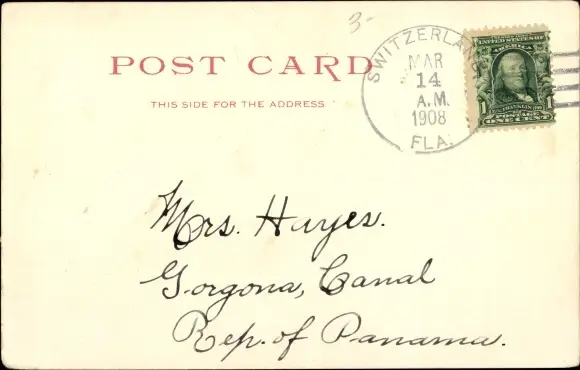 3-
POST CARD
THIS SIDE FOR THE ADDRESS
SWITZERLAND
MAR
14
A.M.
1908
FLA.
UNITED STATES OF
AMERICA
1 1
FRANKLIN
POSTAGE
ONE CENT
Mrs. Hayes.
Gorgona, Canal
Rep. of Panama.